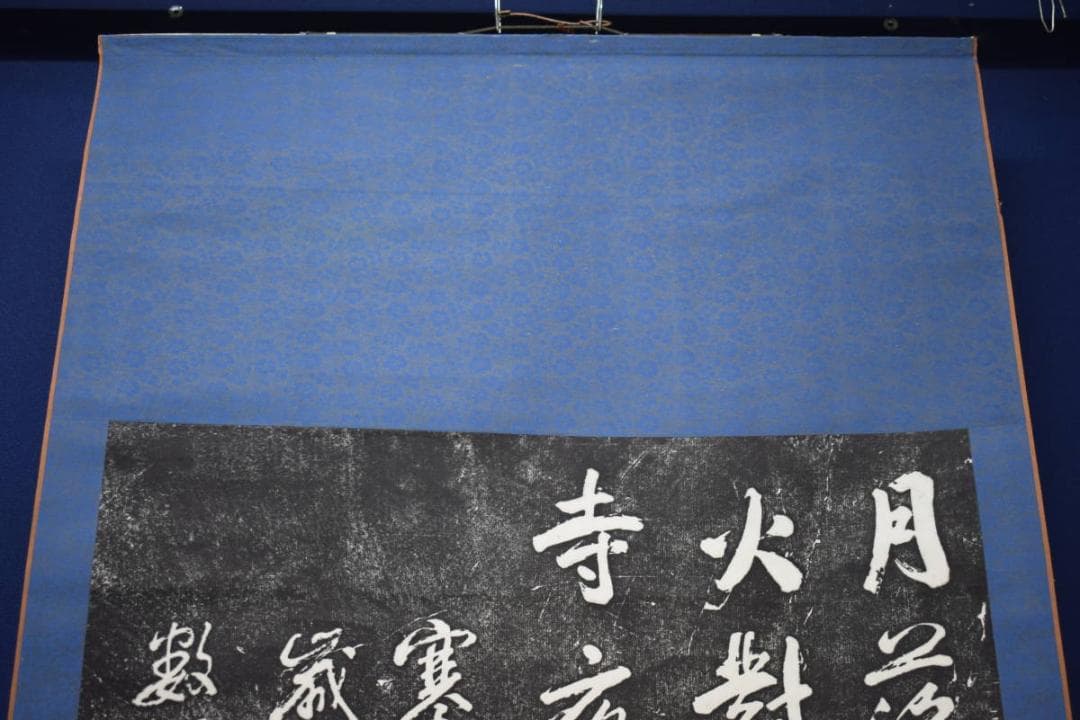 月落
火對
寺夜
寒
歲
數